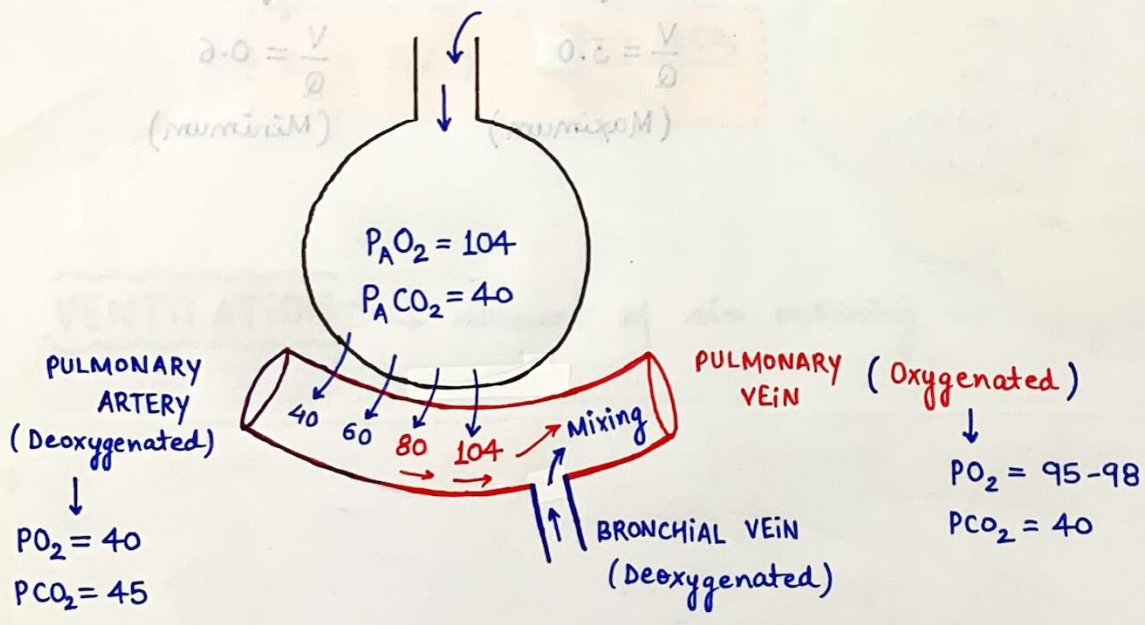 P_A O₂ = 104
P_A CO₂ = 40
PULMONARY
ARTERY
(Deoxygenated)
↓
PO₂ = 40
PCO₂ = 45
40 60 80 104
→ →
Mixing
PULMONARY
VEiN
(Oxygenated)
↓
PO₂ = 95-98
PCO₂ = 40
BRONCHIAL VEiN
(Deoxygenated)
V/Q = 0.6
(Minimum)
V/Q = 3.0
(Maximum)